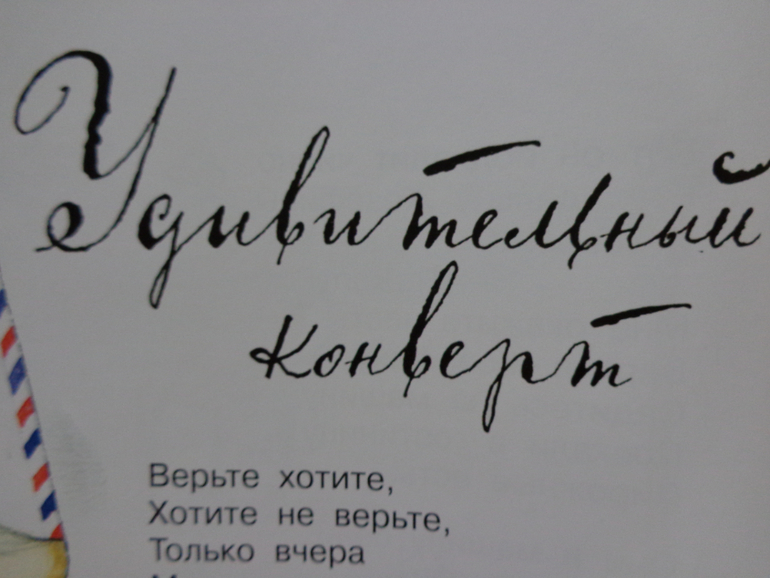 Удивительный
конверт
Верьте хотите,
Хотите не верьте,
Только вчера